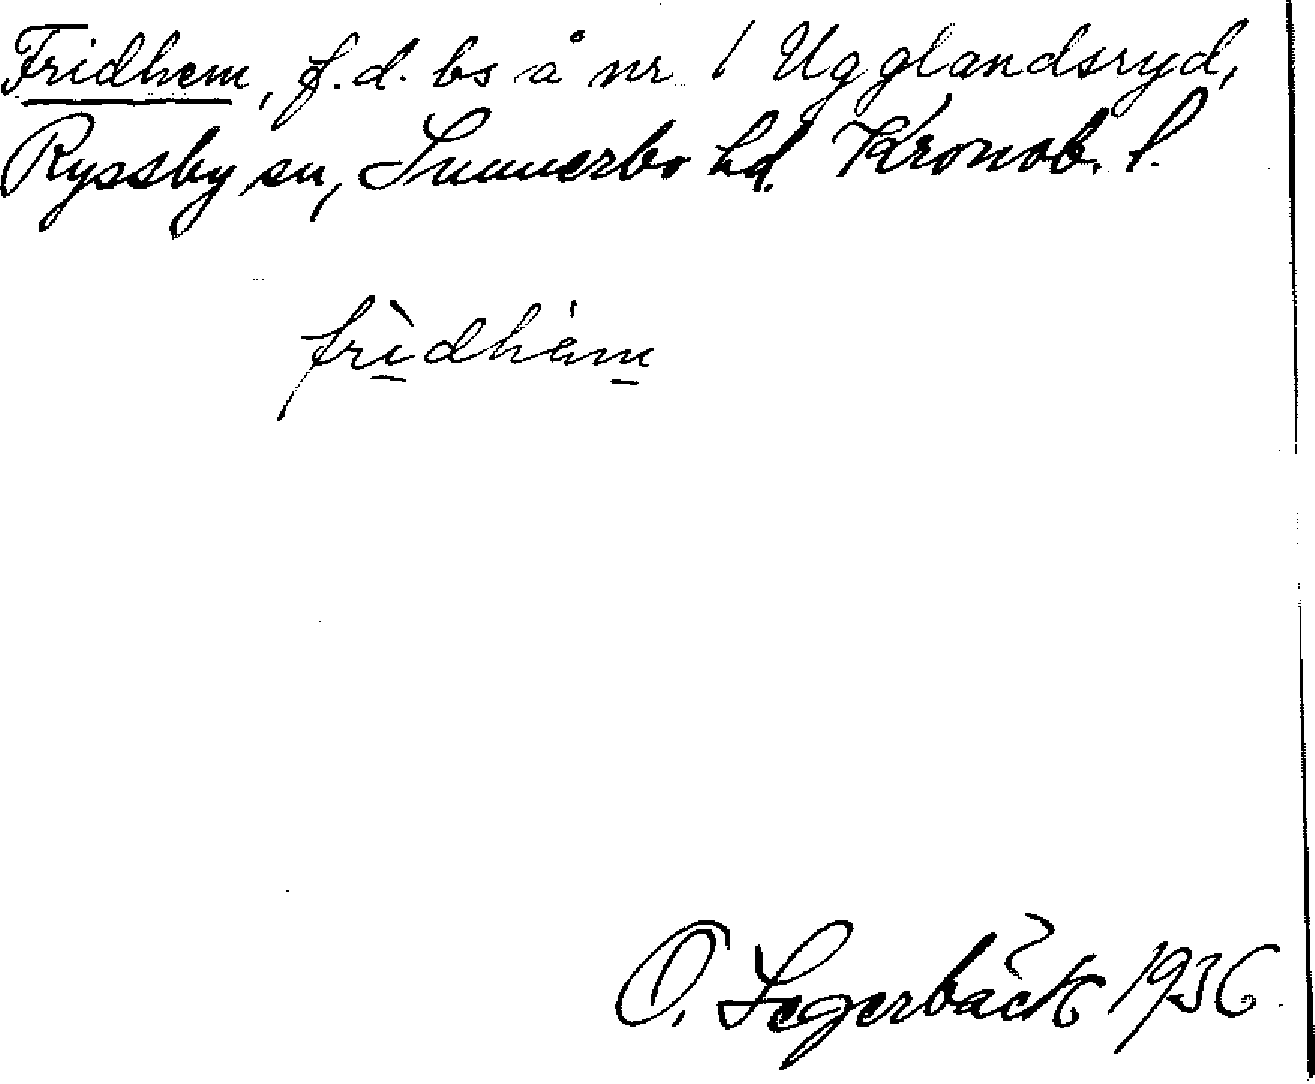 Fridhem, f.d. bs å nr 1 Ugglandsryd,
Ryssby sn, Sunnerbo hd. Kronob. l.
frìdhám
O. Segerbäck 1936